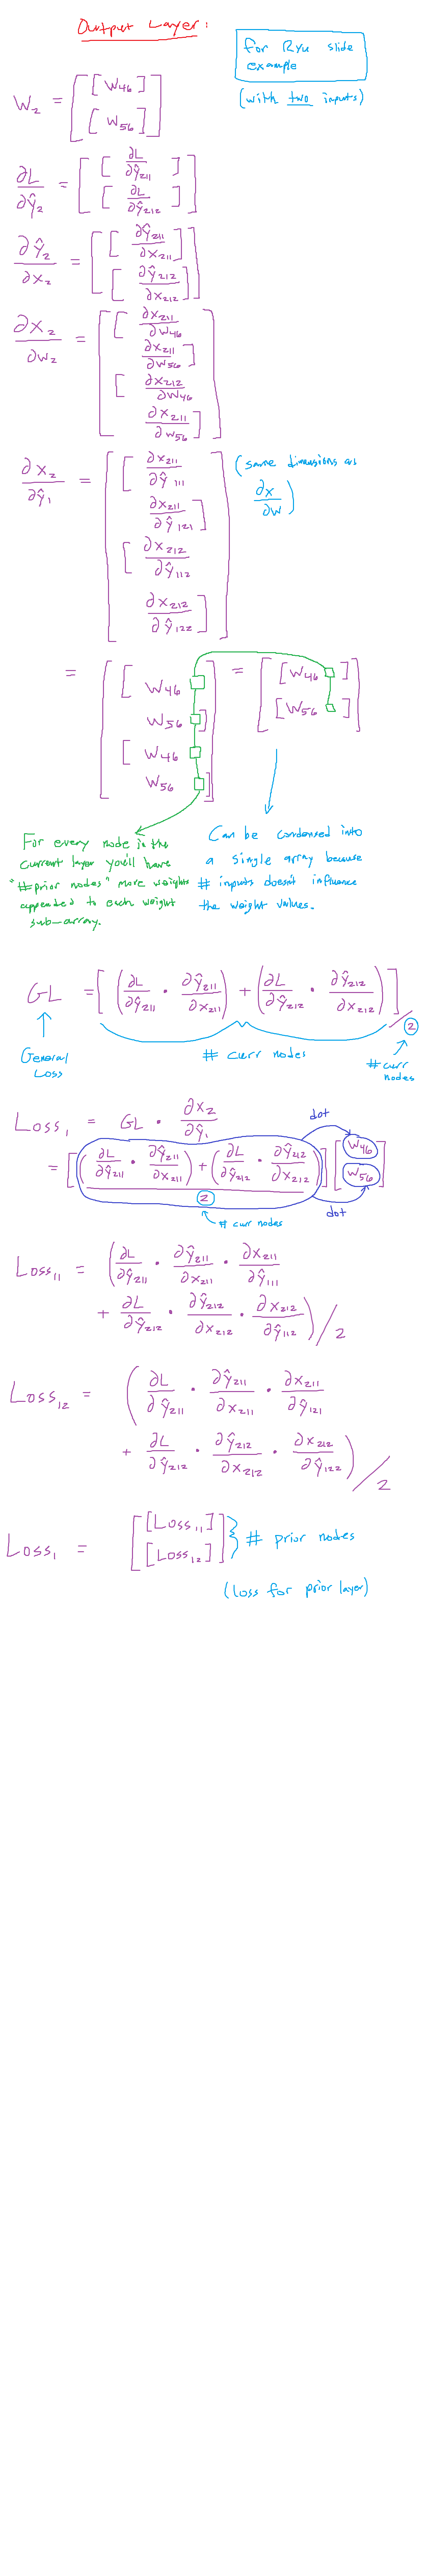 Output Layer:
for Ryu slide
example
(with two inputs)
W₂ = [[W₄₆]
[W₅₆]]
∂L/∂ŷ₂ = [[∂L/∂ŷ₂₁₁]
[∂L/∂ŷ₂₁₂]]
∂ŷ₂/∂x₂ = [[∂ŷ₂₁₁/∂x₂₁₁]
[∂ŷ₂₁₂/∂x₂₁₂]]
∂x₂/∂w₂ = [[∂x₂₁₁/∂w₄₆
∂x₂₁₁/∂w₅₆]
[∂x₂₁₂/∂w₄₆
∂x₂₁₁/∂w₅₆]]
∂x₂/∂ŷ₁ = [[∂x₂₁₁/∂ŷ₁₁₁
∂x₂₁₁/∂ŷ₁₂₁]
[∂x₂₁₂/∂ŷ₁₁₂
∂x₂₁₂/∂ŷ₁₂₂]]
(same dimensions as
∂x/∂w)
= [[W₄₆
W₅₆]
[W₄₆
W₅₆]] = [[W₄₆]
[W₅₆]]
For every node in the
current layer you'll have
"#prior nodes" more weights
appended to each weight
sub-array.
Can be condensed into
a single array because
# inputs doesn't influence
the weight values.
GL = [(∂L/∂ŷ₂₁₁ · ∂ŷ₂₁₁/∂x₂₁₁) + (∂L/∂ŷ₂₁₂ · ∂ŷ₂₁₂/∂x₂₁₂)] / 2
General
Loss
# curr nodes
# curr
nodes
Loss₁ = GL · ∂x₂/∂ŷ₁
dot
= [(∂L/∂ŷ₂₁₁ · ∂ŷ₂₁₁/∂x₂₁₁) + (∂L/∂ŷ₂₁₂ · ∂ŷ₂₁₂/∂x₂₁₂) / 2] [W₄₆
W₅₆]
dot
# curr nodes
Loss₁₁ = (∂L/∂ŷ₂₁₁ · ∂ŷ₂₁₁/∂x₂₁₁ · ∂x₂₁₁/∂ŷ₁₁₁
+ ∂L/∂ŷ₂₁₂ · ∂ŷ₂₁₂/∂x₂₁₂ · ∂x₂₁₂/∂ŷ₁₁₂) / 2
Loss₁₂ = (∂L/∂ŷ₂₁₁ · ∂ŷ₂₁₁/∂x₂₁₁ · ∂x₂₁₁/∂ŷ₁₂₁
+ ∂L/∂ŷ₂₁₂ · ∂ŷ₂₁₂/∂x₂₁₂ · ∂x₂₁₂/∂ŷ₁₂₂) / 2
Loss₁ = [[Loss₁₁]
[Loss₁₂]] } # prior nodes
(loss for prior layer)